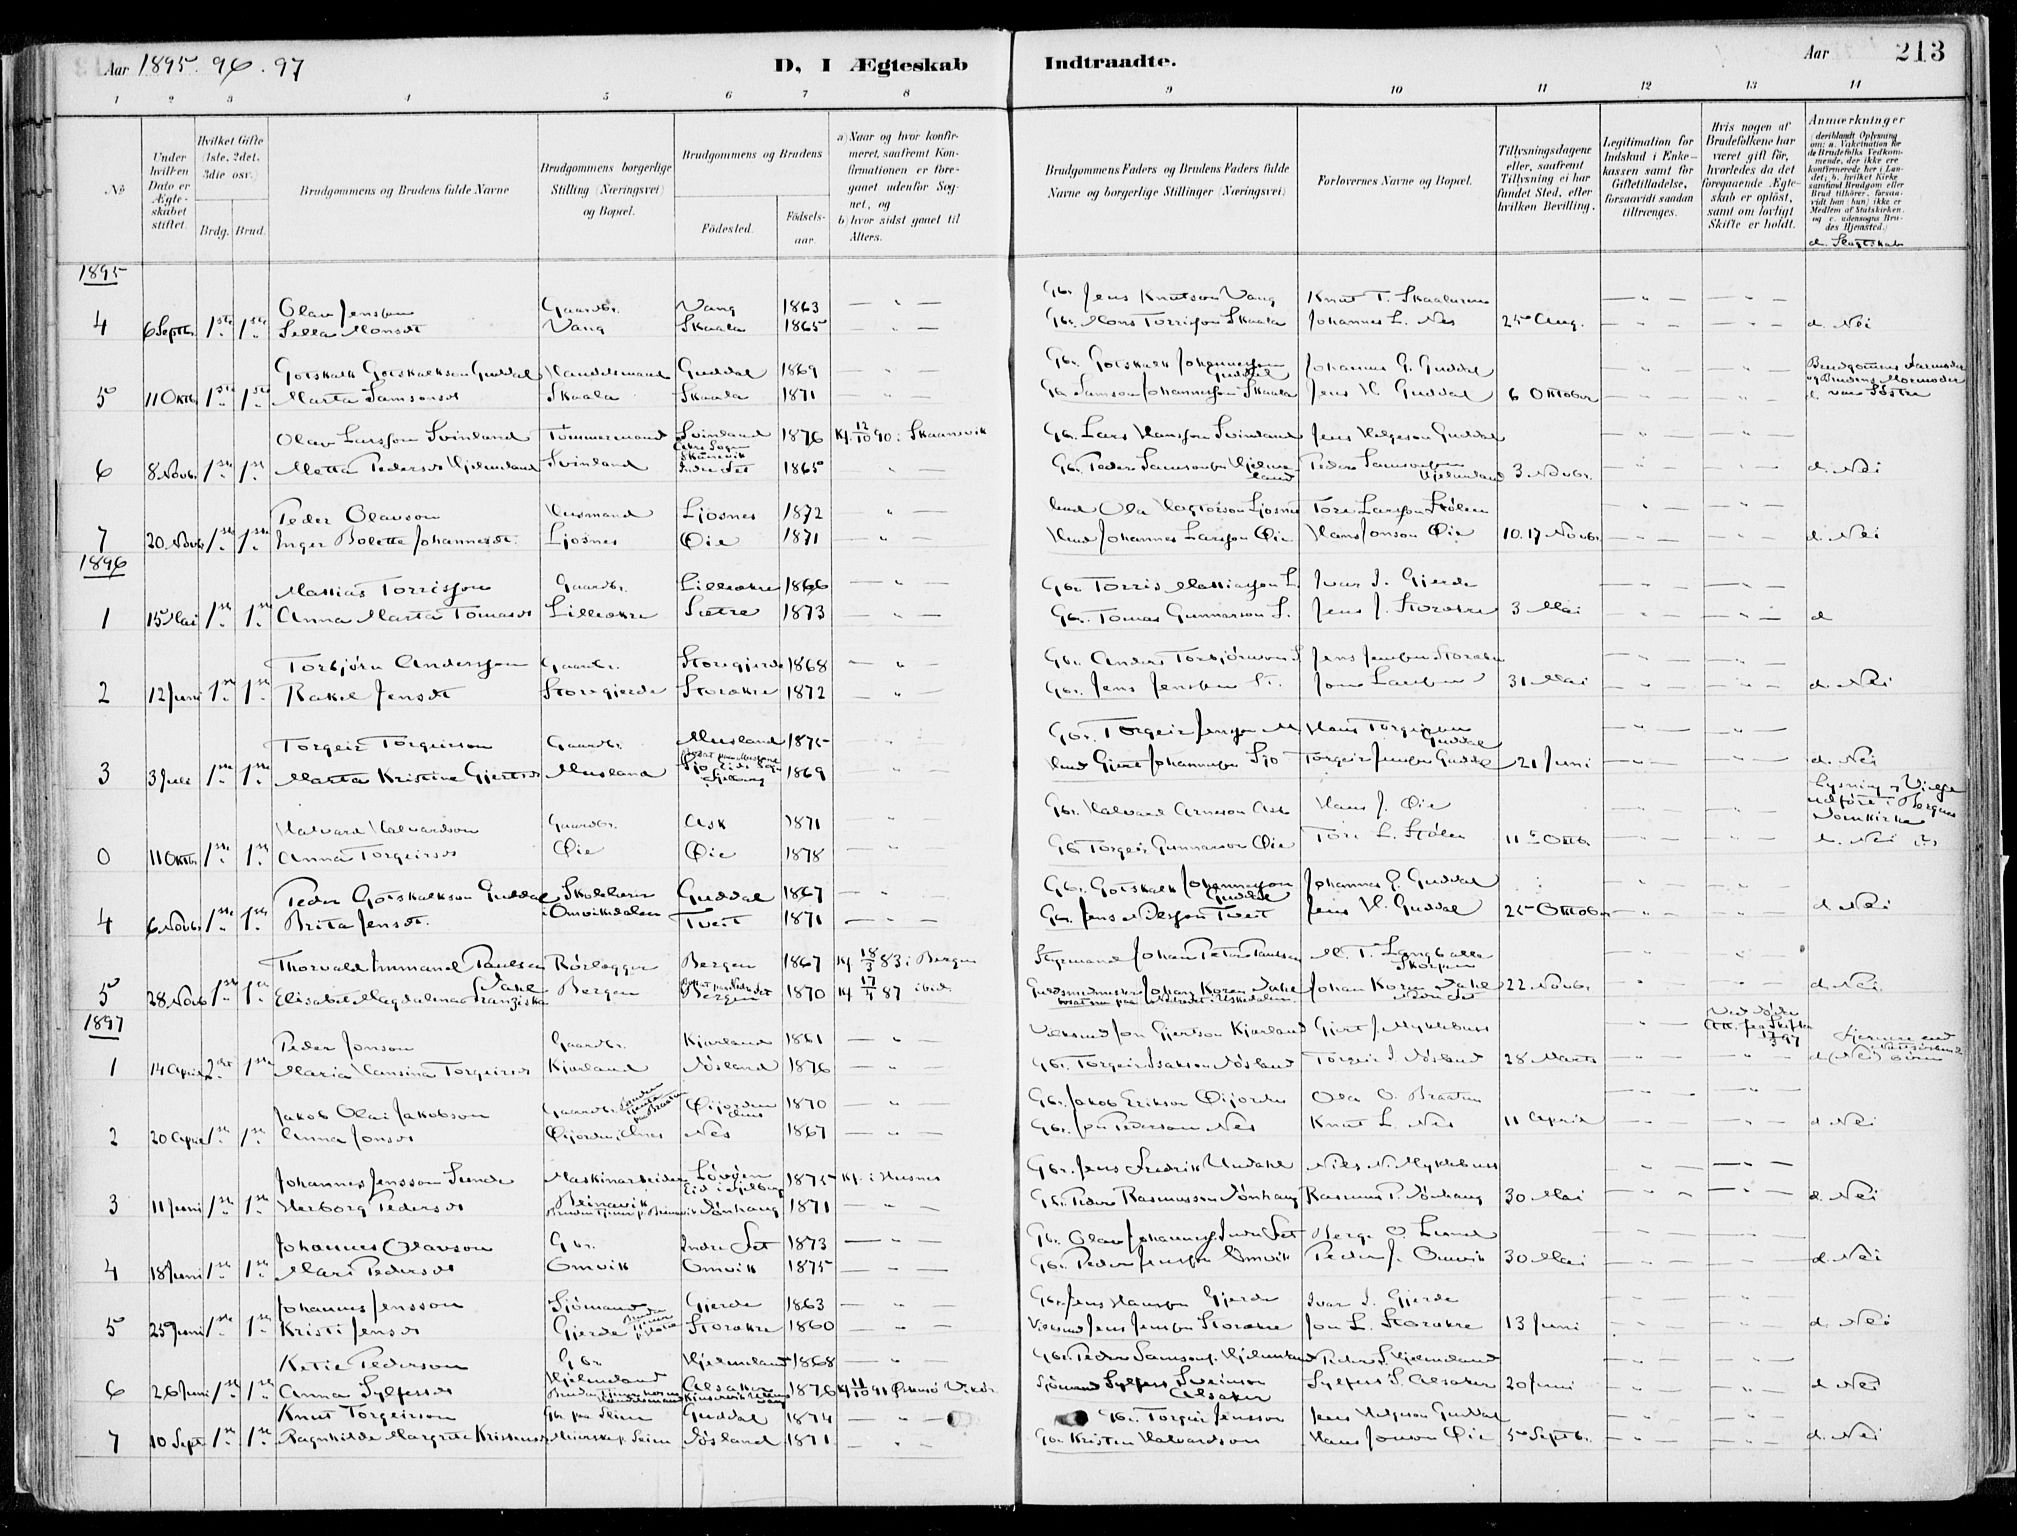 Aar 1895. 96. 97
D, I Ægteskab Indtraadte.
Aar 213
1 2 3 4 5 6 7 8 9 10 11 12 13 14
No
Under hvilken Dato er Ægteskabet stiftet.
Hvilket Gifte (1ste, 2det, 3die osv.)
Brdg. Brud.
Brudgommens og Brudens fulde Navne
Brudgommens borgerlige Stilling (Næringsvei) og Bopæl.
Brudgommens og Brudens
Födested. Födsels-aar.
a) Naar og hvor konfirmeret, saafremt Konfirmationen er foregaaet udenfor Sognet, og
b) hvor sidst gaaet til Alters.
Brudgommens Faders og Brudens Faders fulde Navne og borgerlige Stillinger (Næringsvei)
Forlovernes Navne og Bopæl.
Tillysningsdagene eller, saafremt Tillysning ei har fundet Sted, efter hvilken Bevilling.
Legitimation for Indskud i Enkekassen samt for Giftetilladelse, forsaavidt saadan tiltrænges.
Hvis nogen af Brudefolkene har været gift før, hvorledes da det foregaaende Ægteskab er oplöst, samt om lovligt Skifte er holdt.
Anmærkninger
(deriblandt Oplysning om: a. Vakcination for de Brudefolks Vedkommende, der ikke ere konfirmerede her i Landet; b. hvilket Kirkesamfund Brudgom eller Brud tilhörer, forsaavidt han (hun) ikke er Medlem af Statskirken, og c. udensogns Brudes Hjemsted.)
d. Slegtskab
1895
Olav Jensson Gaardbr. Vang 1863 Gbr. Jens Knutson Vang Knut T. Skaaluren
4 6 Septb. 1ste 1ste Sella Monsdt Vang Skaala 1865 Gbr. Mons Torrisson Skaala Johannes L. Nes 25 Aug. d. Nei
Gotskalk Gotskalkson Guddal Handelsmand Guddal 1869 Gbr. Gotskalk Johannesson Guddal Johannes G. Guddal Brudgommens Farmoder og Brudens Mormoder
5 11 Oktb. 1ste 1ste Marta Samsonsdt Skaala Skaala 1871 Gbr. Samson Johannesson Skaala Jens H. Guddal 6 Oktober d. var Søstre
Olav Larsson Svinland Tømmermand Svinland 1876 Kf. 12/10 90 i Skaanevik Gbr. Lars Hansson Svinland Jens Helgeson Guddal
6 8 Novb. 1ste 1ste Metta Pedersdt Hjelmeland Svinland Indre Set 1865 Gbr. Peder Samsonson Hjelmeland Peder Samsonson Hjelmeland 3 Novbr. d. Nei
Peder Olavson Husmand Ljosnes 1872 Tore Larsson Stölen
7 20 Novb 1ste 1ste Inger Bolette Johannesdt. Ljosnes Øie 1871 Husmd Johannes Larsson Øie Hans Jonson Øie 10. 17 Novbr. d. Nei
1896
Massias Torrisson Gaardbr. Lilleakre 1866 Gbr. Torris Massiasson L. Ivar J. Gjerde
1 15 Mai 1ste 1ste Anna Marta Tomasdt Lilleakre Sætre 1873 Gbr. Tomas Gunnarson S. Jens J. Storakre 3 Mai d
Torbjörn Andersson Gaardbr. Storegjerde 1868 Gbr. Anders Torbjörnson S Jens Jensson Storakre
2 12 Juni 1ste 1ste Rakel Jensdt Storegjerde Storakre 1872 Gbr. Jens Jensson St. 31 Mai d. Nei
Torgeir Torgeirson Gaardbr. Musland 1875 Gbr. Torgeir Jensson M Hans Torgeirson Guddal
3 3 Juli 1ste 1ste Marta Kristine Gjertsdt Musland Sjo 1869 Husmd Gjert Johannesson Sjo Torgeir Jensson Guddal 21 Juni d. Nei
Lysning og Vielse udført i Bergens Domkirke
Halvard Halvardson Gaardbr. Ask 1871 Gbr. Halvard Arneson Ask Hans J. Øie
0 11 Oktb. 1ste 1ste Anna Torgeirsdt Øie Øie 1878 Gbr Torgeir Gunnarson Øie Tore L. Stölen 11 Oktb. d. Nei
Peder Gotskalkson Guddal Skolelærer Guddal 1867 Gbr. Gotskalk Johannesson Guddal Johannes G. Guddal
4 6 Novbr. 1ste 1ste Brita Jensdt. i Omvikdalen Tveit 1871 Gbr. Jens Nilsson Tveit Jens H. Guddal 25 Oktober d Nei
Thorvald Immanuel Paulsen Rörlægger Bergen 1867 Kf 18/3 83 i Bergen Styrmand Johan Peter Paulsen M. T. Langballe Skorpen
5 28 Novb 1ste 1ste Elisabet Magdalena Franziska Dahl Bergen Bergen 1870 Kf 17/4 87 ibid. Johan Koren Dahl Johan Koren Dahl 22 Novbr. d. Nei.
1897
Peder Jonson Gaardbr. Kjærland 1861 Jon Gjertson Kjærland Gjert J. Myklebust
1 14 April 2det 1ste Maria Hansina Torgeirsdt Kjærland Nösland 1876 Gbr. Torgeir Isakson Nösland Torgeir I. Nösland 28 Marts d (Nei)
Jakob Olai Jakobson Gaardbr. Øijorden 1870 Gbr. Jakob Erikson Øijorden Ola O. Braaten
2 20 April 1ste 1ste Anna Jonsdt Nes 1867 Gbr. Jon Pederson Nes Knut L. Nes 11 April d Nei
Johannes Jensson Sunde Maskinarbeider Lövöen 1875 Kf. i Husnes Gbr. Jens Fredrik Undahl Niels N. Myklebust
3 11 Juni 1ste 1ste Herborg Pedersdt Beinavik Nönhaug 1871 Gbr. Peder Rasmusson Nönhaug Rasmus P. Nönhaug 30 Mai d. Nei
Johannes Olavson Gbr. Indre Set 1873 Gbr. Olav Johanness. Indre Set Berge O. Lund
4 18 Juni 1ste 1ste Mari Pedersdt Omvik Omvik 1875 Gbr. Peder Jensson Omvik Peder J. Omvik 30 Mai d. Nei
Johannes Jensson Sjömand Gjerde 1863 Gbr. Jens Hansson Gjerde Ivar J. Gjerde
5 25 Juni 1ste 1ste Kristi Jensdt Gjerde Storakre 1860 Jens Jensson Storakre Jon L. Storakre 13 Juni d. Nei
Ketil Pederson Gbr. Hjelmeland 1868 Gbr. Peder Samsons. Hjelmeland Peder S. Hjelmeland
6 26 Juni 1ste 1ste Anna Sylfestdt Hjelmeland Alsaker 1876 Kf 11/10 91 Østensö Vikör Sjömand Sylfest Sveinson Alsaker Sylfest S. Alsaker 20 Juni d Nei
Knut Torgeirson Gbr. paa Seim Guddal 1874 Gbr. Torgeir Jensson Jens Helgeson Guddal
7 10 Sept 1ste 1ste Ragnhilde Margrete Kristensdt Seim Nösland 1871 Gbr. Kristen Halvardson Hans Jonson Øie 5 Septb. d. Nei